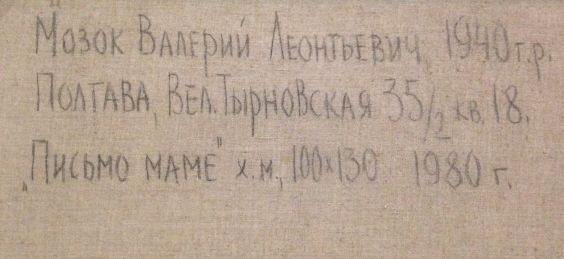 Мозок Валерий Леонтьевич, 1940 г.р.
Полтава, Вел. Тырновская 35/2 кв. 18.
„Письмо маме" х.м., 100×130 1980 г.